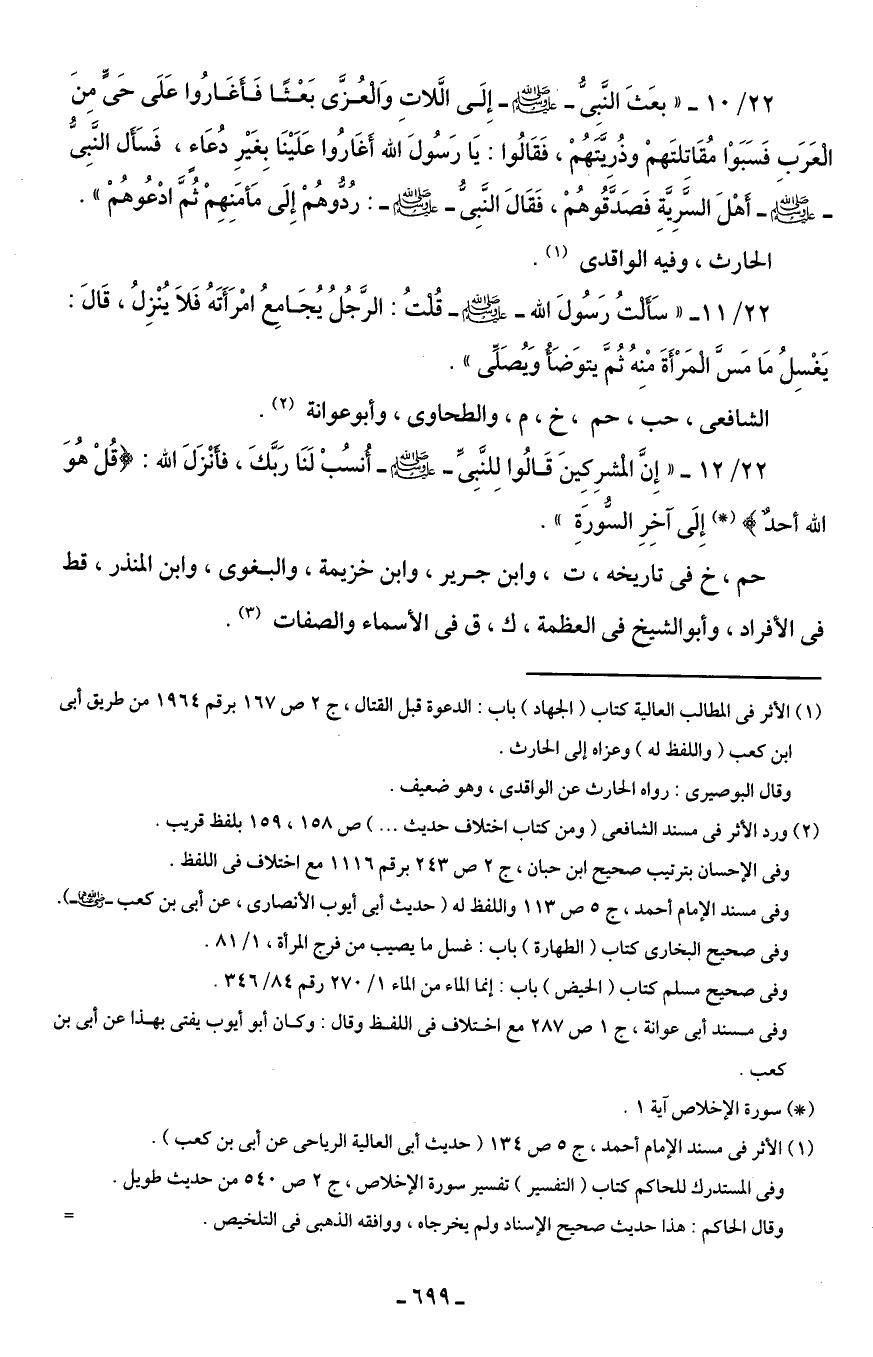 ٢٢/ ١٠ - « بعَثَ النَّبِىُّ - ﷺ - إِلَـى الَّلاتِ وَالْعُـزَّى بَعْـثًـا فَـأغَـارُوا عَلَى حَىٍّ مِنَ
الْعَرَبِ فَسَبَوْا مُقَاتِلتَهمْ وذُرِيَّتَهُمْ ، فَقَالُوا : يَا رَسُولَ الله أغَارُوا عَلَيْنَا بِغَيْرِ دُعَاء ، فَسأَل النَّبِىُّ
- ﷺ - أَهْلَ السَّرِيَّةِ فَصَدَّقُوهُمْ ، فَقَالَ النَّبِىُّ - ﷺ - : رُدُّوهُمْ إِلَى مَأمَنِهِمْ ثُمَّ ادْعُوهُمْ » .
الحارث ، وفيه الواقدى (١) .
٢٢/ ١١- « سَأَلْتُ رَسُولَ الله - ﷺ - قُلْتُ : الرَّجُلُ يُجَـامِعُ امْرَأَتَهُ فَلاَ يُنْزِلُ ، قَالَ :
يَغْسِلُ مَا مَسَّ الْمَرْأَةَ مِنْهُ ثُمَّ يتوَضأُ وَيُصَلِّى » .
الشافعى ، حب ، حم ، خ ، م ، والطحاوى ، وأبوعوانة (٢) .
٢٢/ ١٢ - « إِنَّ الْمُشرِكِينَ قَـالُوا لِلنَّبِىِّ - ﷺ - أُنسُبْ لَنَا رَبَّكَ ، فَأنْزَلَ الله : ﴿قُلْ هُوَ
الله أحدٌ ﴾ (*) إِلَى آخِرِ السُّورَةِ » .
حم ، خ فى تاريخه ، ت ، وابن جـرير ، وابن خزيمة ، والبـغوى ، وابن المنذر ، قط
فى الأفراد ، وأبوالشيخ فى العظمة ، ك ، ق فى الأسماء والصفات (٣) .
(١) الأثر فى المطالب العالية كتاب ( الجهاد ) باب : الدعوة قبل القتال ، ج ٢ ص ١٦٧ برقم ١٩٦٤ من طريق أبى
ابن كعب ( واللفظ له ) وعزاه إلى الحارث .
وقال البوصيرى : رواه الحارث عن الواقدى ، وهو ضعيف .
(٢) ورد الأثر فى مسند الشافعى ( ومن كتاب اختلاف حديث ... ) ص ١٥٨ ، ١٥٩ بلفظ قريب .
وفى الإحسان بترتيب صحيح ابن حبان ، ج ٢ ص ٢٤٣ برقم ١١١٦ مع اختلاف فى اللفظ .
وفى مسند الإمام أحمد ، ج ٥ ص ١١٣ واللفظ له ( حديث أبى أيوب الأنصارى ، عن أبى بن كعب - رضي الله عنهما -).
وفى صحيح البخارى كتاب ( الطهارة ) باب : غسل ما يصيب من فرج المرأة ، ١/ ٨١ .
وفى صحيح مسلم كتاب ( الحيض ) باب : إنما الماء من الماء ١/ ٢٧٠ رقم ٨٤/ ٣٤٦ .
وفى مـسند أبى عوانة ، ج ١ ص ٢٨٧ مع اخـتلاف فى اللفـظ وقال : وكـان أبو أيوب يفتى بهـذا عن أبى بن
كعب .
(*) سورة الإخلاص آية ١ .
(١) الأثر فى مسند الإمام أحمد ، ج ٥ ص ١٣٤ ( حديث أبى العالية الرياحى عن أبى بن كعب ) .
وفى المستدرك للحاكم كتاب ( التفسير ) تفسير سورة الإخلاص ، ج ٢ ص ٥٤٠ من حديث طويل .
وقال الحاكم : هذا حديث صحيح الإسناد ولم يخرجاه ، ووافقه الذهبى فى التلخيص . =
- ٦٩٩ -